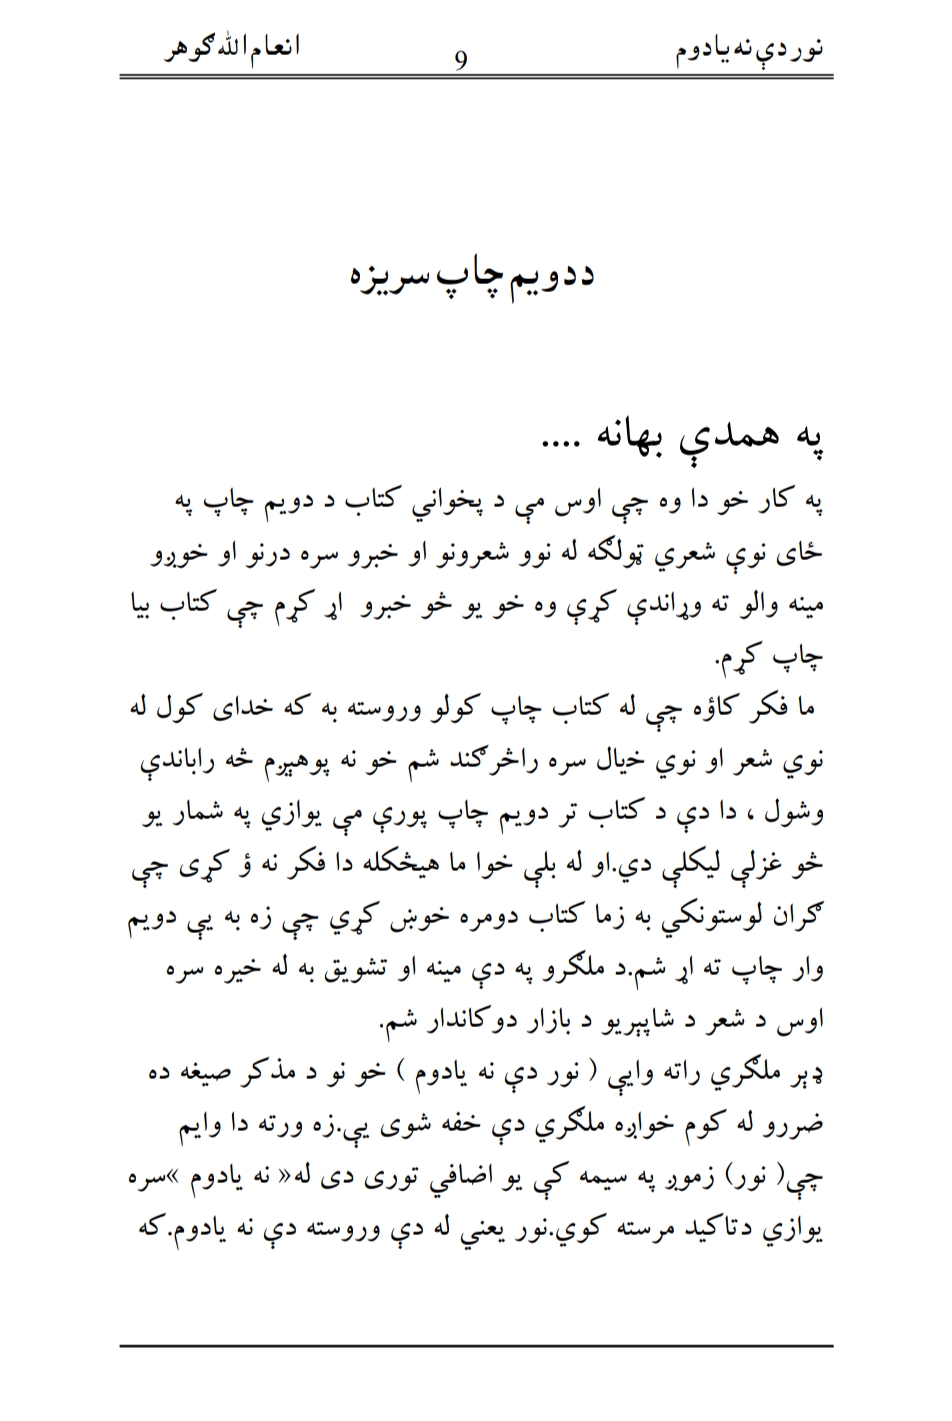 نور دې نه يادوم 9 انعام الله ګوهر
د دويم چاپ سريزه
په همدې بهانه ....
په کار خو دا وه چې اوس مې د پخواني کتاب د دويم چاپ په
ځای نوې شعري ټولګه له نوو شعرونو او خبرو سره درنو او خوږو
مينه والو ته وړاندې کړې وه خو يو څو خبرو اړ کړم چې کتاب بيا
چاپ کړم.
ما فکر کاؤه چې له کتاب چاپ کولو وروسته به که خدای کول له
نوي شعر او نوي خيال سره راڅرګند شم خو نه پوهېږم څه راباندې
وشول ، دا دې د کتاب تر دويم چاپ پورې مې يوازې په شمار يو
څو غزلې ليکلې دي.او له بلې خوا ما هيڅکله دا فکر نه ؤ کړی چې
ګران لوستونکي به زما کتاب دومره خوښ کړي چې زه به يې دويم
وار چاپ ته اړ شم.د ملګرو په دې مينه او تشويق به له خيره سره
اوس د شعر د شاپېريو د بازار دوکاندار شم.
ډېر ملګري راته وايې ( نور دې نه يادوم ) خو نو د مذکر صيغه ده
ضررو له کوم خواږه ملګري دې خفه شوی يې.زه ورته دا وايم
چې( نور) زموږ په سيمه کې يو اضافي توری دی له« نه يادوم »سره
يوازې دتاکيد مرسته کوي.نور يعني له دې وروسته دې نه يادوم.که